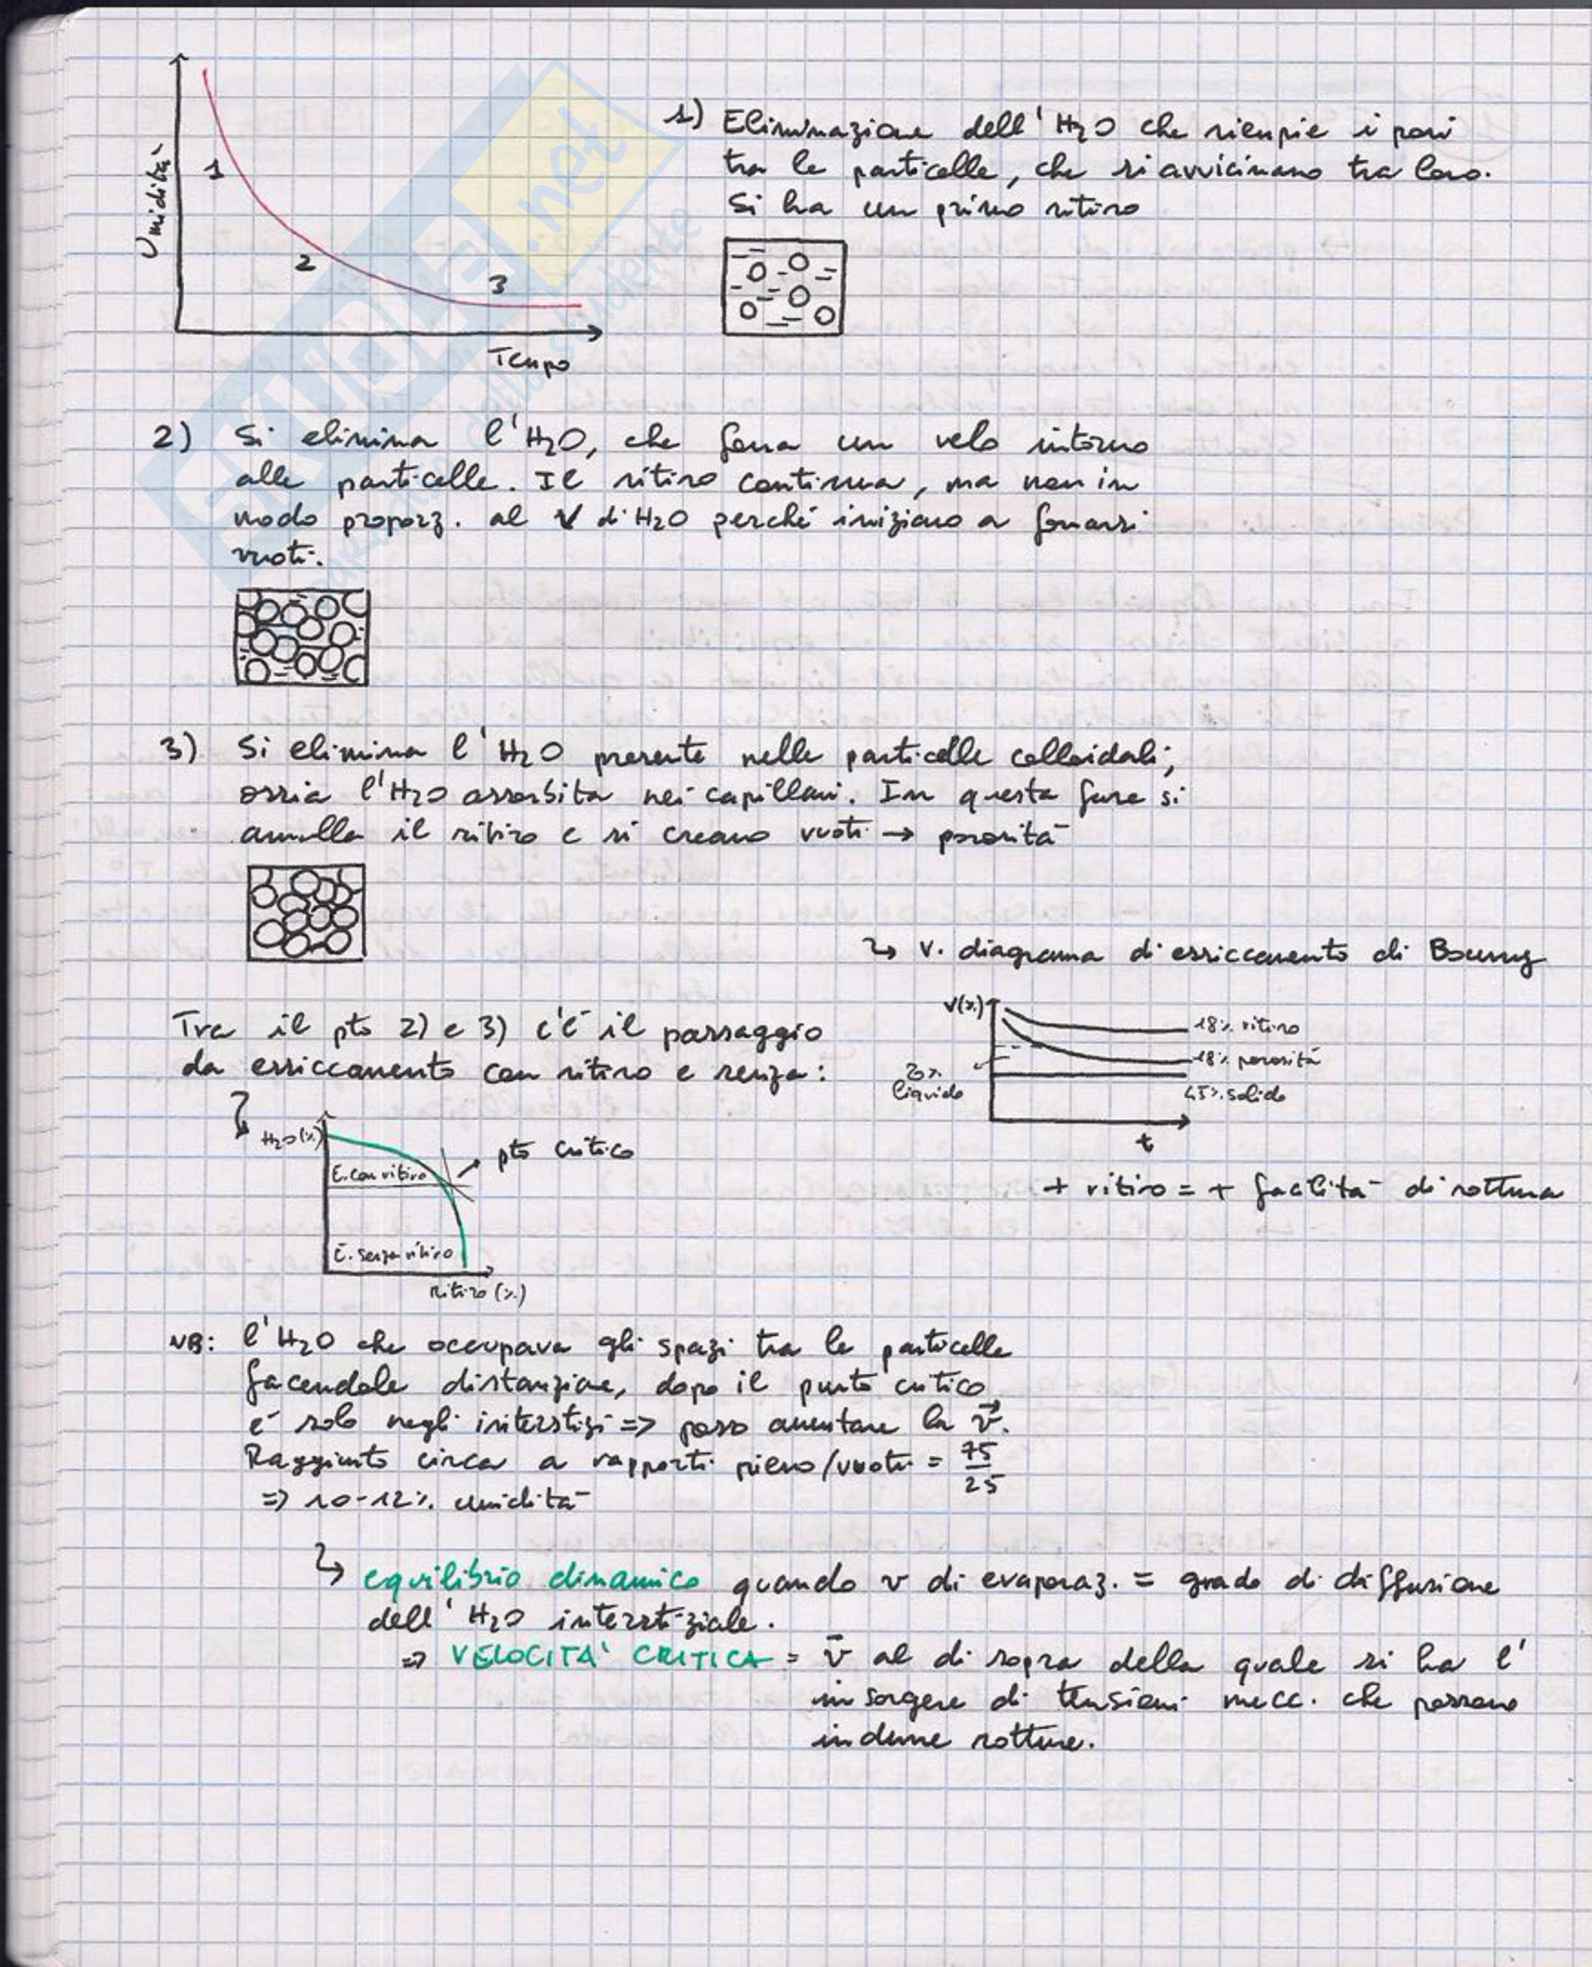 Umidità
1
2
3
Tempo
1) Eliminazione dell'H2O che riempie i pori
tra le particelle, che si avvicinano tra loro.
Si ha un primo ritiro
2) Si elimina l'H2O, che forma un velo intorno
alle particelle. Il ritiro continua, ma non in
modo proporz. al V di H2O perché iniziano a formarsi
vuoti.
3) Si elimina l'H2O presente nelle particelle colloidali,
ossia l'H2O assorbita nei capillari. In questa fase si
annulla il ritiro e si creano vuoti → porosità
↳ v. diagramma di essiccamento di
V(%)
18% ritiro
18% porosità
liquido
45% solido
t
+ ritiro = + facilità di rottura
Tra il pto 2) e 3) c'è il passaggio
da essiccamento con ritiro e senza:
H2O(%)
E. con ritiro
pto critico
E. senza ritiro
Ritiro (%)
NB: l'H2O che occupava gli spazi tra le particelle
facendole distanziare, dopo il punto critico
è solo negli interstizi => posso aumentare la v.
Raggiunto circa a rapporti pieno/vuoti = 75/25
=> 10-12% umidità
↳ equilibrio dinamico quando v di evaporaz. = grado di diffusione
dell'H2O interstiziale.
=> VELOCITA' CRITICA = v al di sopra della quale si ha l'
insorgere di tensioni mecc. che possono
indurre rotture.